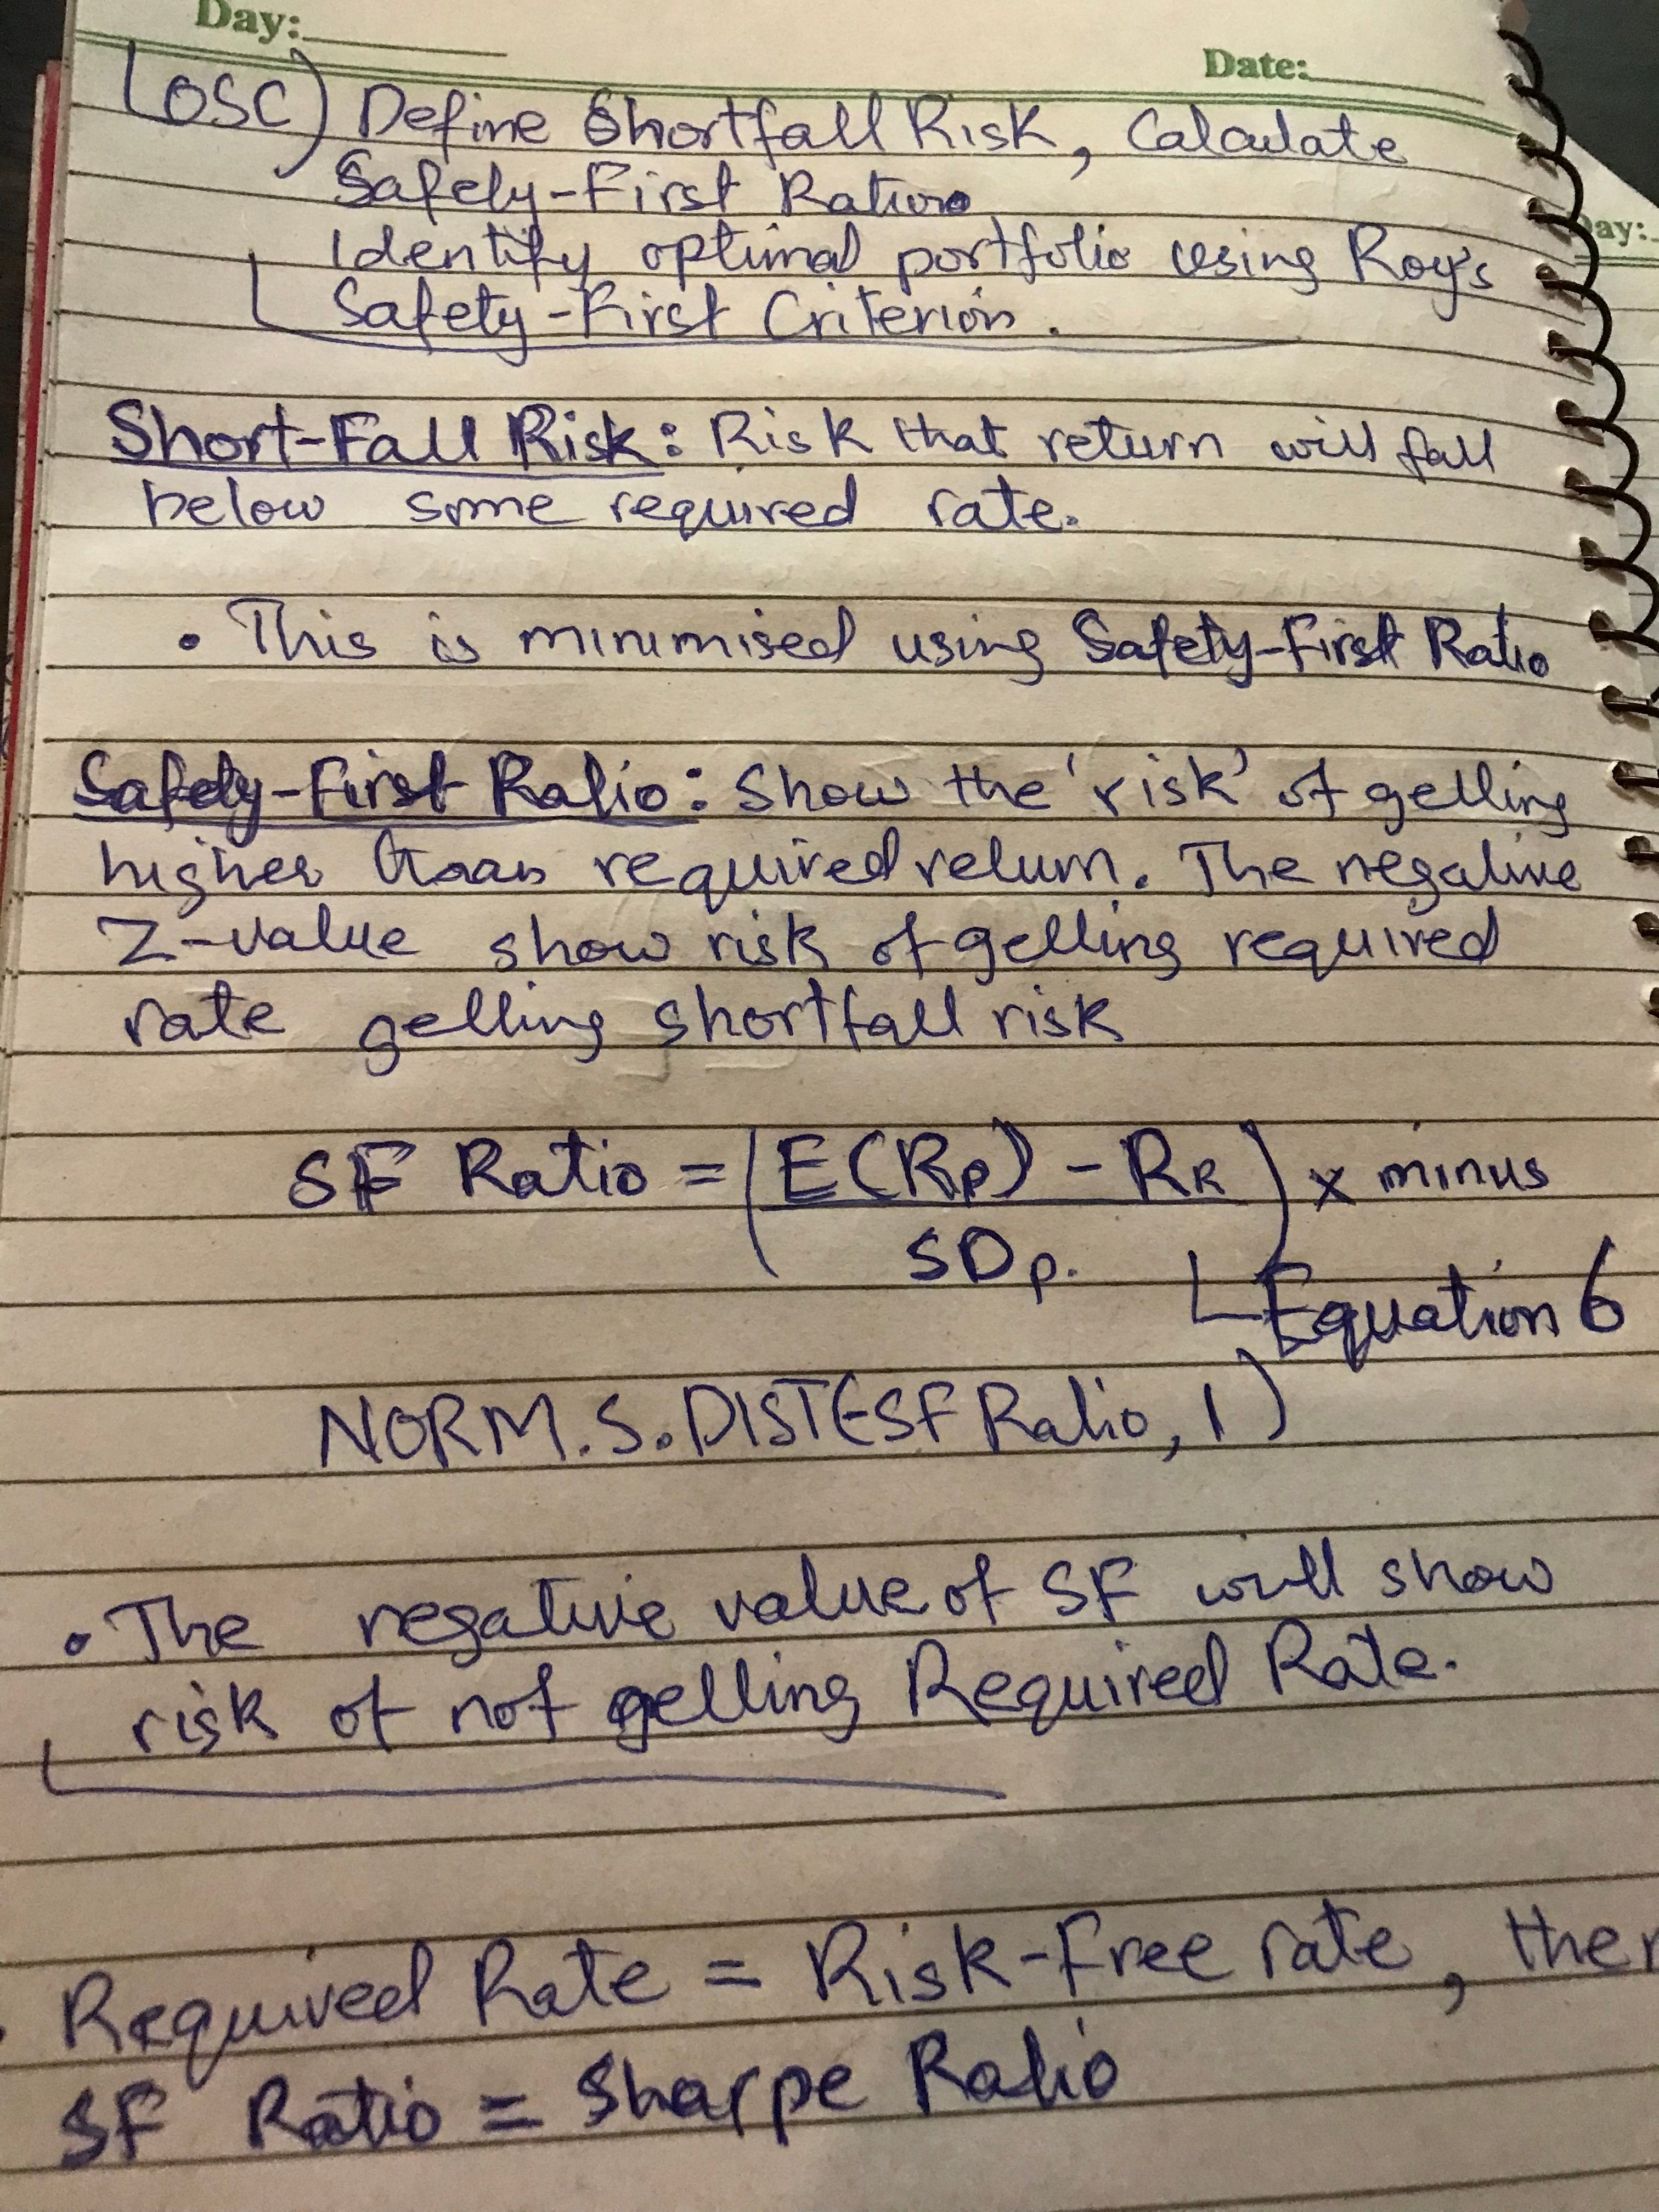 Day:
Date:
LOSC) Define Shortfall Risk, Calculate
Safety-First Ratio.
Identify optimal portfolio using Roy's
Safety-First Criterion.
Short-Fall Risk: Risk that return will fall
below some required rate.
• This is minimised using Safety-First Ratio
Safety-First Ratio: Show the 'risk' of getting
higher than required return. The negative
Z-value show risk of getting required
rate getting shortfall risk
SF Ratio = (E(Rp) - RR / SDp.) x minus
Equation 6
NORM.S.DIST(-SF Ratio, 1)
• The negative value of SF will show
risk of not getting Required Rate.
. Required Rate = Risk-Free rate, then
SF Ratio = Sharpe Ratio